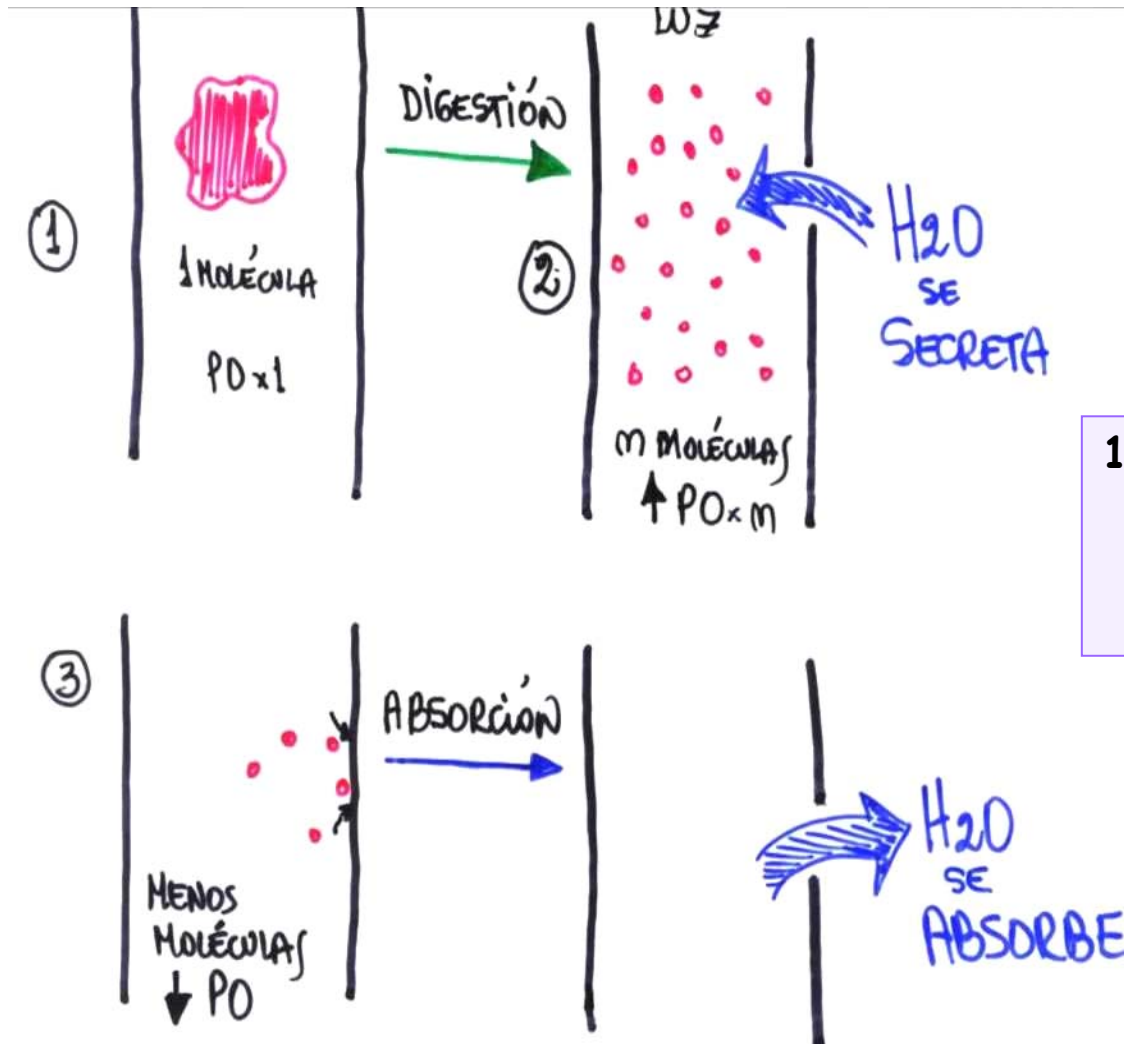 LUZ
①
1 MOLÉCULA
PO x 1
DIGESTIÓN
②
n MOLÉCULAS
↑ PO x n
H2O
SE
SECRETA
1
③
MENOS
MOLÉCULAS
↓ PO
ABSORCIÓN
H2O
SE
ABSORBE